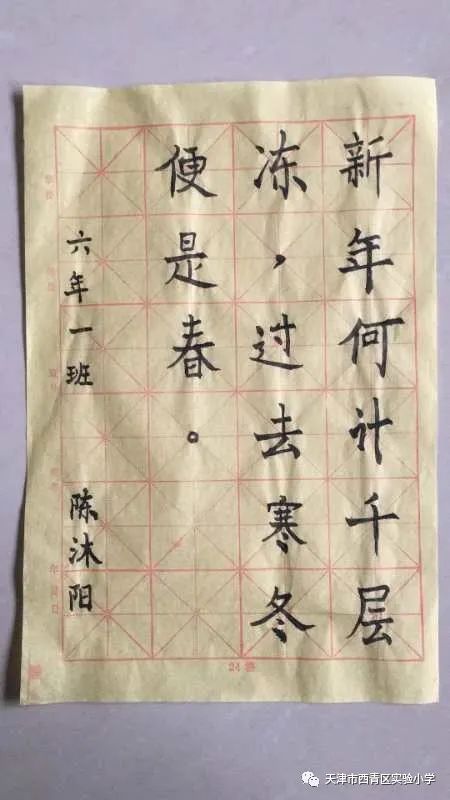 新年何计千层
冻，过去寒冬
便是春。
六年一班 陈沐阳
24格
天津市西青区实验小学